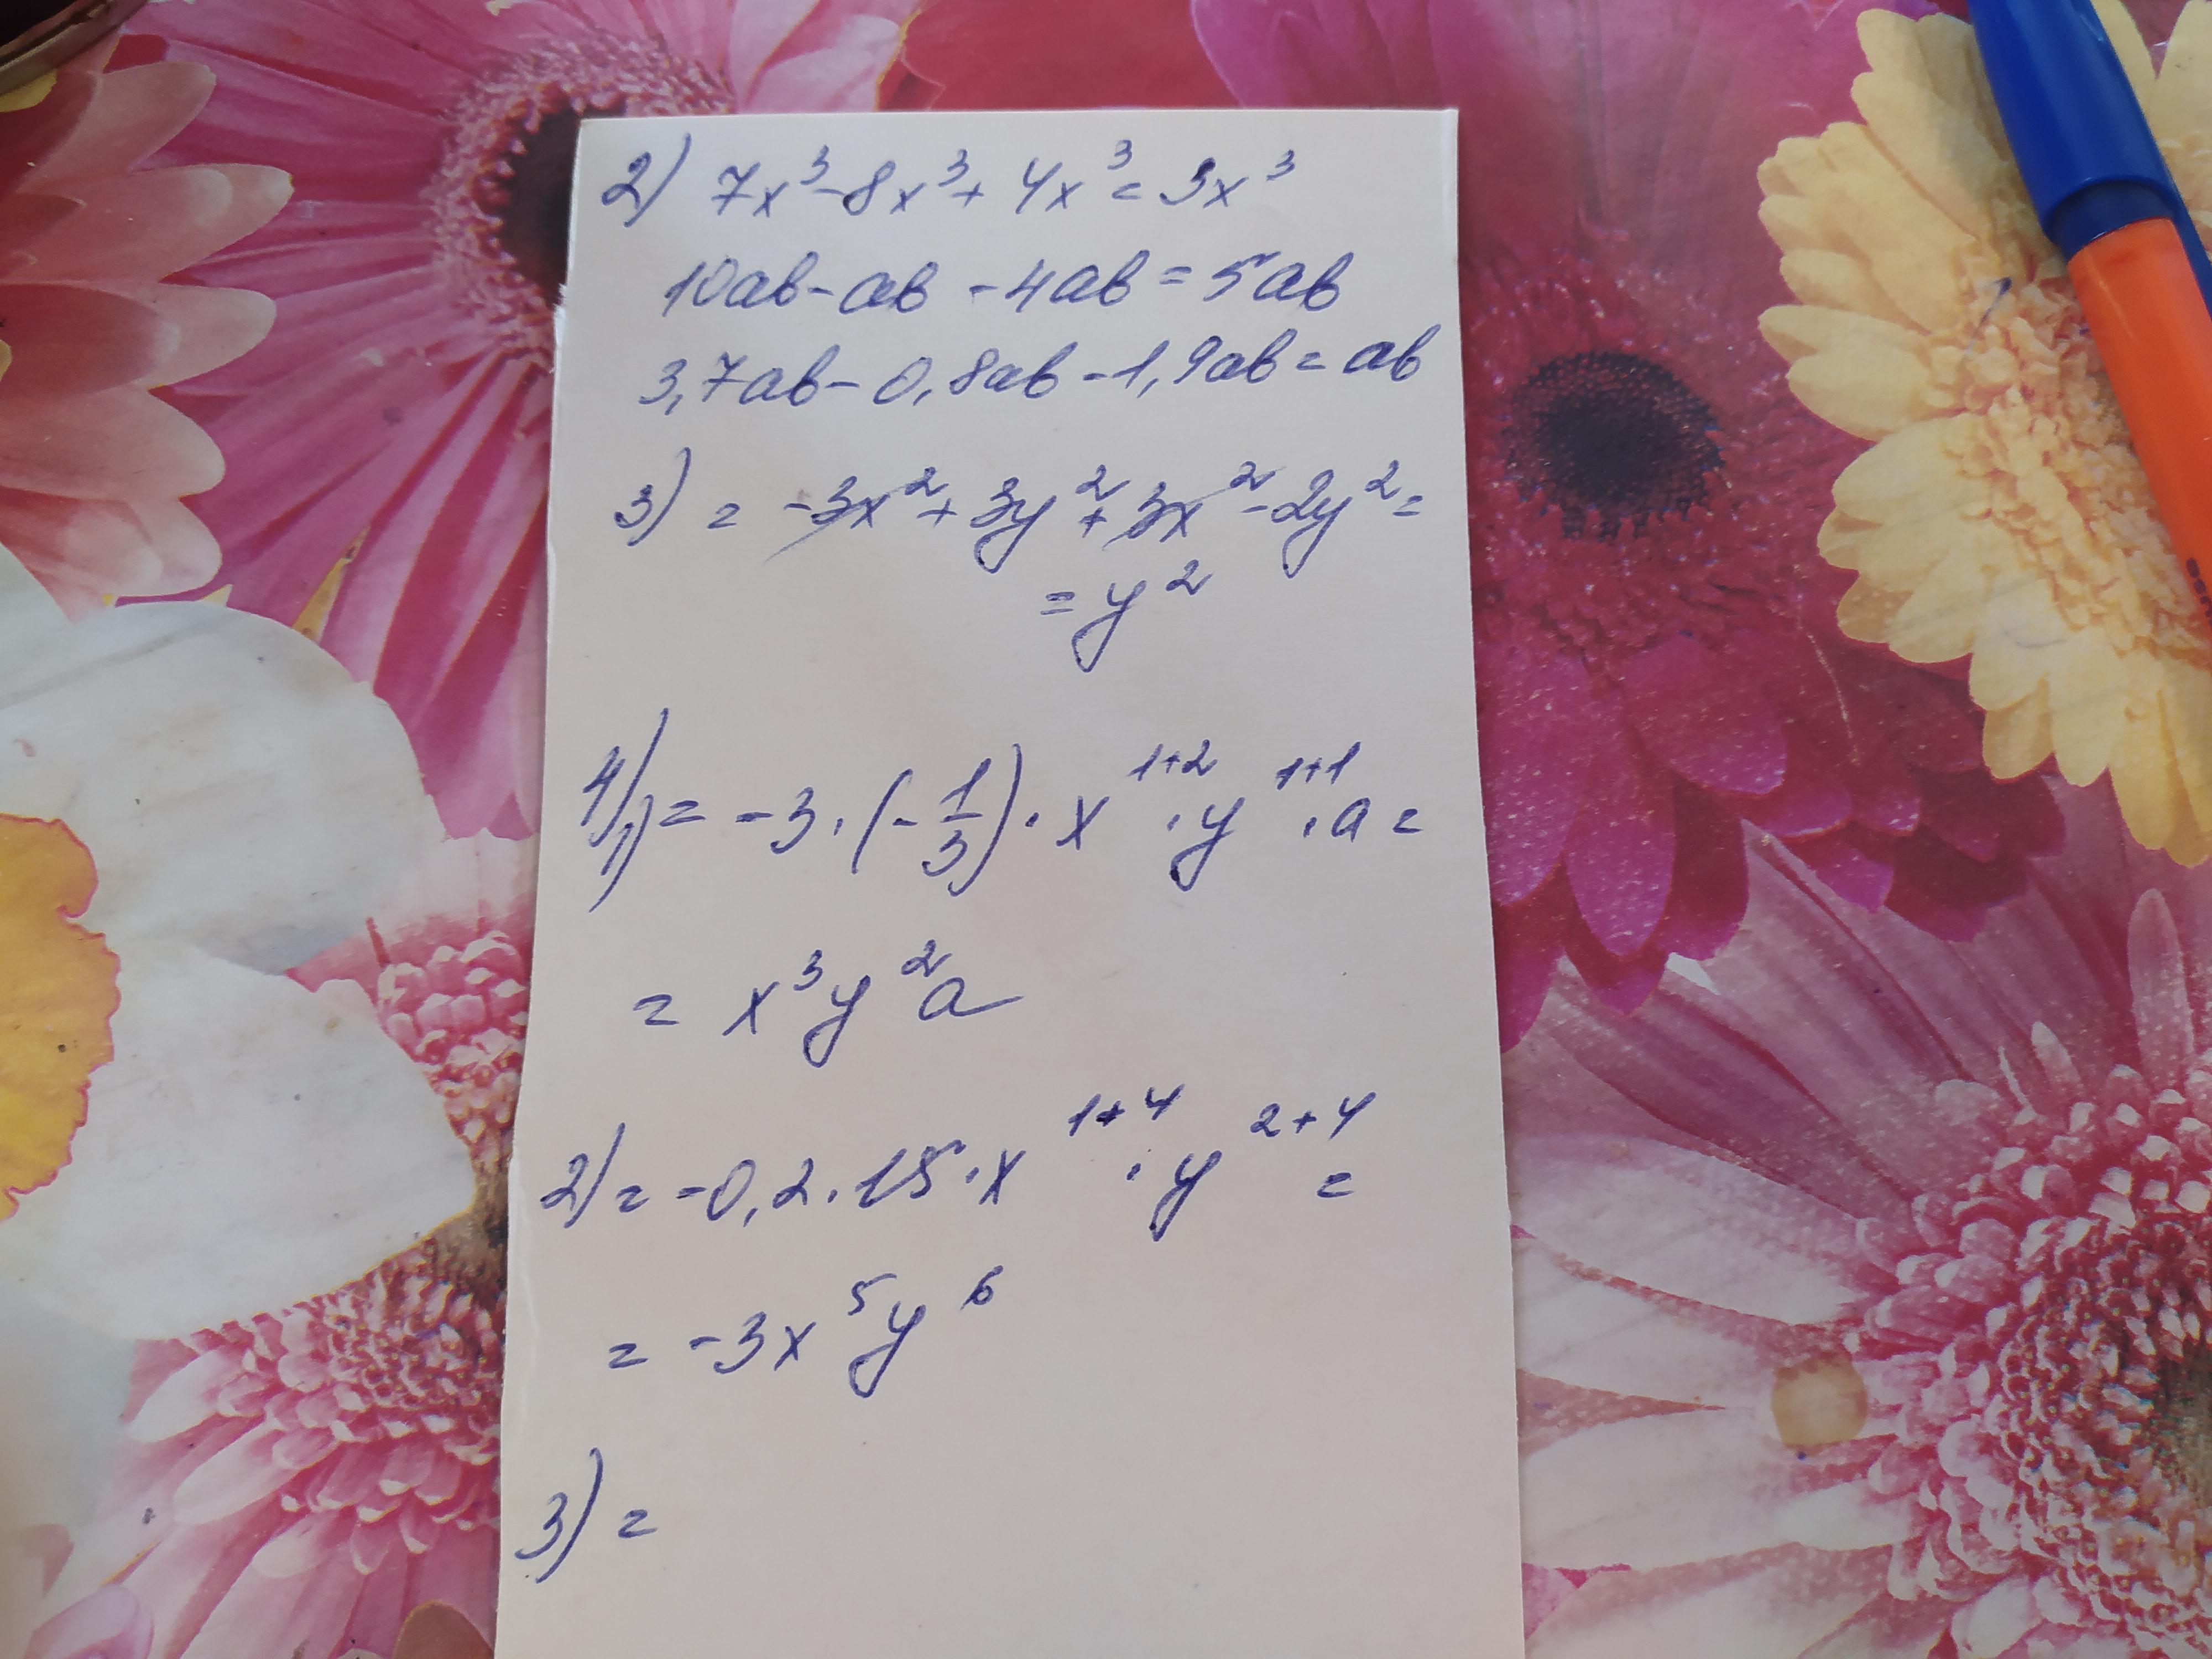 2) 7x³-8x³+4x³=3x³
10ab-ab-4ab=5ab
3,7ab-0,8ab-1,9ab=ab
3) = -3x²+3y²+3x²-2y²=
=y²
4) 1) = -3·(-1/3)·x¹⁺²·y¹⁺¹·a=
= x³y²a
2) = -0,2·15·x¹⁺⁴·y²⁺⁴=
= -3x⁵y⁶
3) =